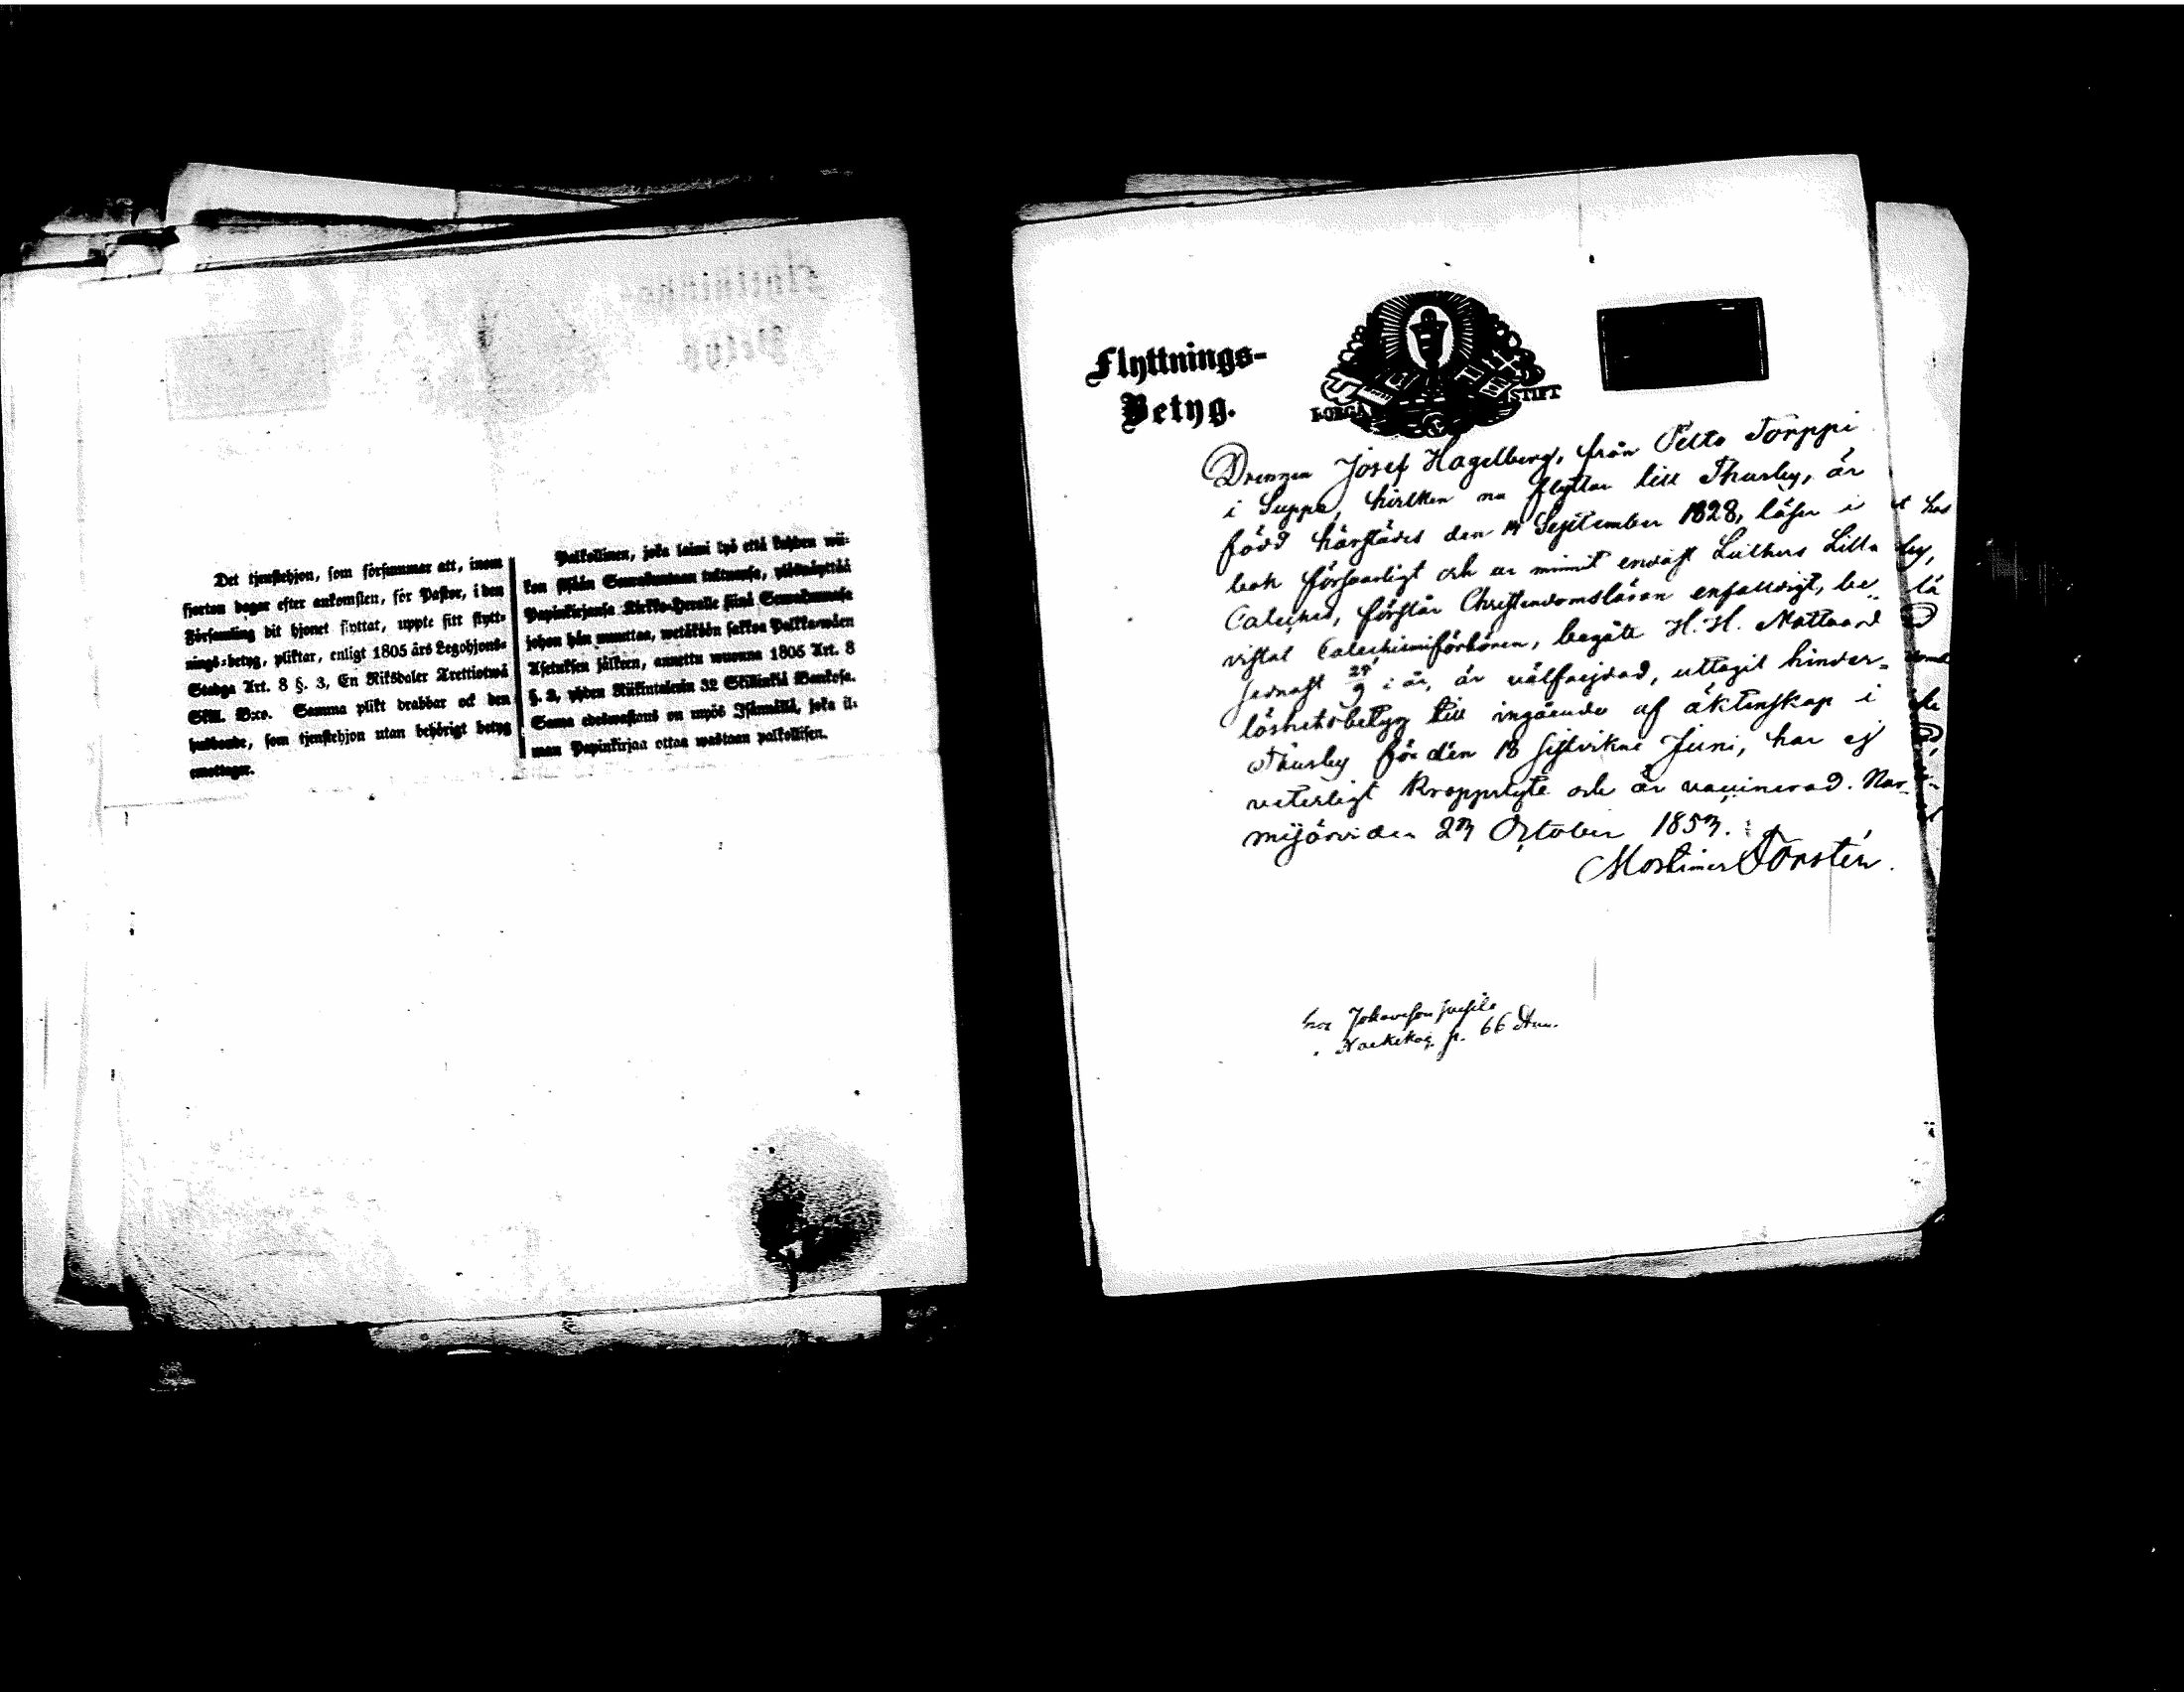 Det tjenstehjon, som försummar att, inom
fjorton dagar efter ankomsten, för Pastor, i den
Församling dit hjonet flyttat, uppte sitt flytt-
nings-betyg, pliktar, enligt 1805 års Legohjons-
Stadga Art. 8 §. 3, En Riksdaler Trettiotwå
Skill. B:co. Samma plikt drabbar ock den
husbonde, som tjenstehjon utan behörigt betyg
emottager.
Palkollinen, joka laimi lyö että kahden wii-
kon sisään Seurakuntaan tultuansa, ylösnäyttää
Papinkirjansa Kirkko-Herralle siinä Seurakunnasa
johon hän muuttaa, wetäköön sakkoa Palkka-wäen
Asetuksen jälkeen, annettu wuonna 1805 Art. 8
§. 3, yhden Riikintalerin 32 Skillinkiä Bankosa.
Sama edeswastaus on myös Isännällä, joka il-
man Papinkirjaa ottaa wastaan palkollisen.
Flyttnings-
Betyg.
BORGÅ STIFT
Drengen Josef Hagelberg, från Pelto Torppi
i Suppa, hvilken nu flyttar till Thusby, är
född härstädes den 14 September 1828, läser i
bok försvarligt och ur minnet endast Luthers Lilla
Cateches, förstår Christendomsläran enfaldigt, be-
vistat Catechismiförhören, begått H. H. Nattvard
sednast 29/9 i år, är välfrejdad, uttagit hinder-
löshetsbetyg till ingående af äktenskap i
Thusby för den 18 sistvikne Juni, har ej
veterligt kroppslyte och är vaccinerad. Nur-
mijärvi den 27 October 1857.
Mortimer Forstén.
Johansson
p. 66